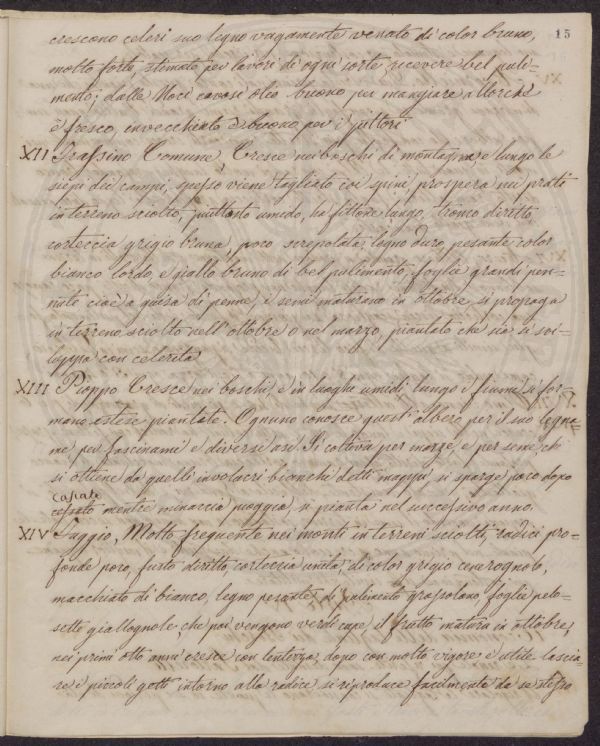 15
crescono celeri suo legno vagamente venato di color bruno,
molto forte, stimato per lavori di ogni sorte, ricevere bel puli=
mento; dalle Noci cavasi olio buono per mangiare allorchè
è fresco, invecchiato è buono per i pittori
XII Frassino Comune, Cresce nei boschi di montagna, e lungo le
siepi dei campi, spesso viene tagliato coi spini, prospera nei prati
in terreno sciolto, piuttosto umido, ha fittone lungo, tronco diritto
corteccia grigio bruna, poco screpolata; legno duro, pesante color
bianco lordo, e giallo bruno di bel pulimento, foglie grandi pen=
nute cioè a guisa di penne, i semi maturano in ottobre, si propaga
in terreno sciolto nell'ottobre o nel marzo, piantato che sia si svi=
luppa con celerità
XIII Pioppo Cresce nei boschi, e in luoghi umidi lungo i fiumi si for=
mano estese piantate. Ognuno conosce quest'albero per il suo legna=
me, per fascinami e diversi usi. Si coltiva per marze, e per seme, chi
si ottiene da quelli involacri bianchi detti mappa, si sparge poco dopo
Casiato
cessato mentre minaccia pioggia, si pianta nel successivo anno.
XIV Faggio, Molto frequente nei monti in terreni sciolti, radici pro=
fonde poco, fusto diritto corteccia unita, di color grigio cenerognolo,
macchiato di bianco, legno pesante, di pulimento grassolano foglie pelo=
sette giallognole, che poi vengono verdi cupe, il frutto matura in ottobre,
nei primi otto anni cresce con lentezza, dopo con molto vigore e utile lascia=
re i piccoli getti intorno alla radice si riproduce facilmente da se stesso